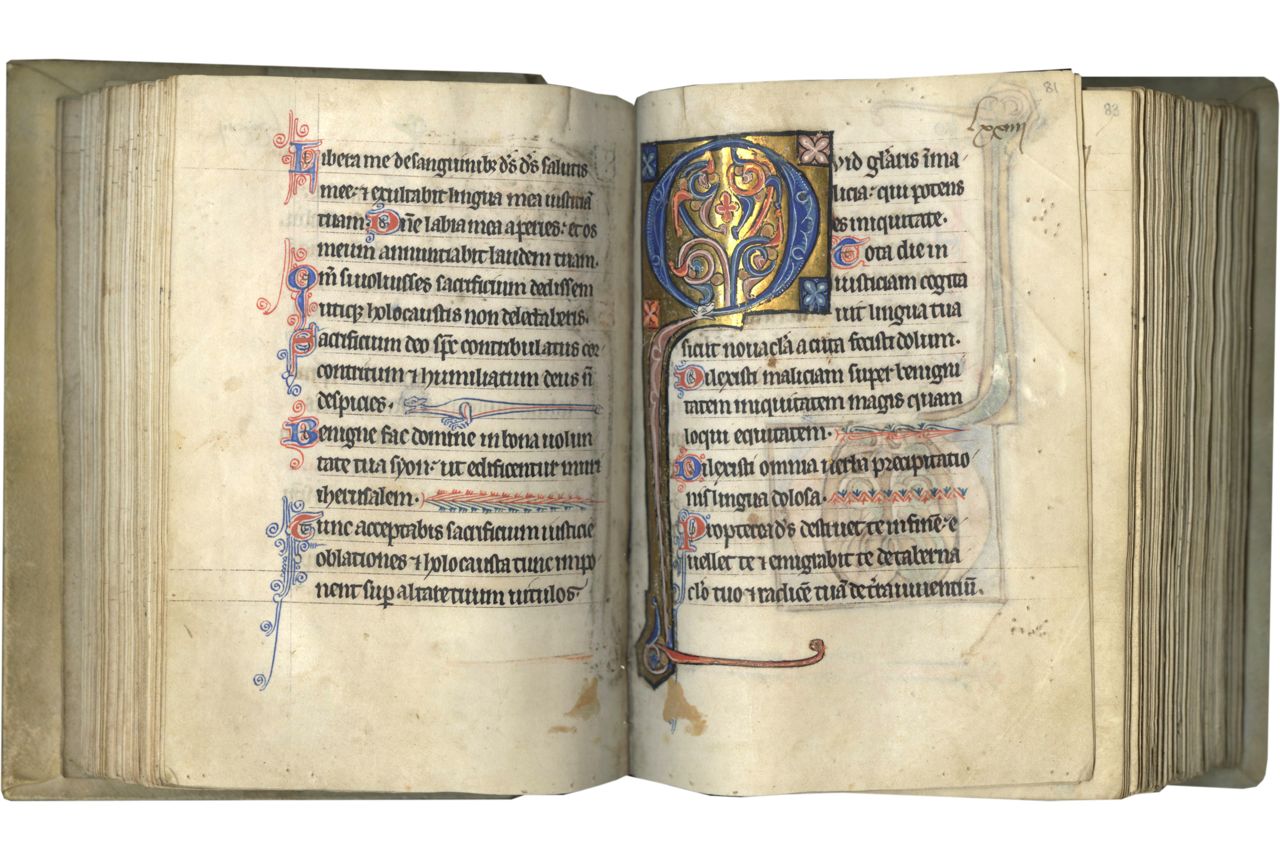 Libera me de sanguinib; d̄s d̄s salutis
mee: ⁊ exultabit lingua mea iusticiā
tuam. Dn̄e labia mea aperies: et os
meum annunciabit laudem tuam.
Qm̄ si uoluisses sacrificium dedissem
utiq; holocaustis non delectaberis.
Sacrificium deo sp̄c contribulatus cor
contritum ⁊ humiliatum deus n̄
despicies.
Benigne fac domine in bona uolun
tate tua syon: ut edificentur muri
iherusalem.
Tunc acceptabis sacrificium iusticie
oblationes ⁊ holocausta tunc inpo
nent sup altare tuum uitulos.
81
83
Quid gl̄aris ī ma
licia: qui potens
es iniquitate.
Tota die in
iusticiam cogita
uit lingua tua
sicut nouacl̄a acuta fecisti dolum.
Dilexisti maliciam super benigni
tatem iniquitatem magis quam
loqui equitatem.
Dilexisti omnia uerba precipitatio
nis lingua dolosa.
Propterea d̄s destruet te in finē: e
uellet te ⁊ emigrabit te de taberna
cl̄o tuo ⁊ radicē tuā de t̄ra uiuentiū.